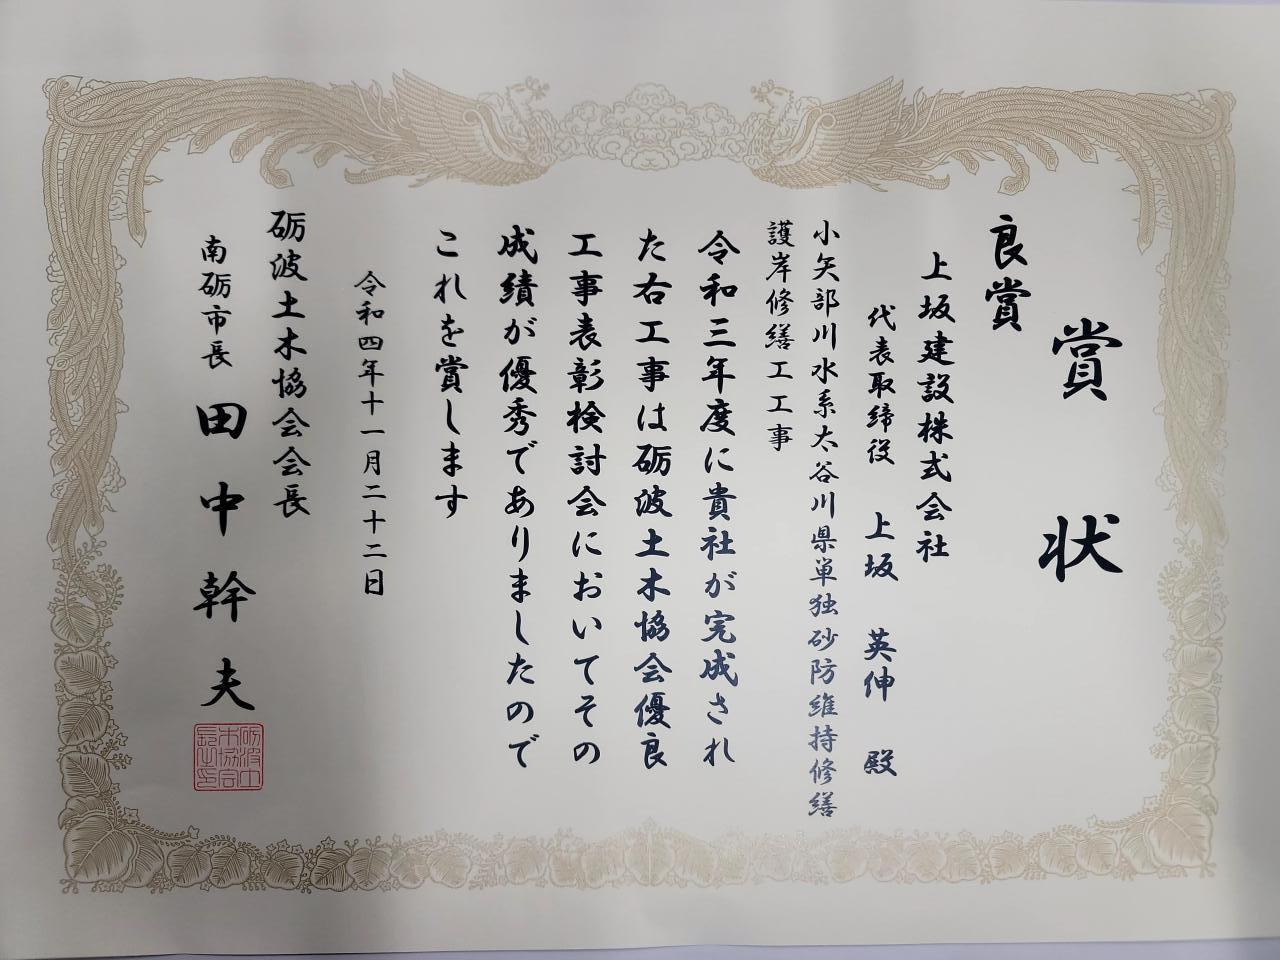 賞状
良賞
上坂建設株式会社
代表取締役 上坂 英伸 殿
小矢部川水系太谷川県単独砂防維持修繕
護岸修繕工工事
令和三年度に貴社が完成され
た右工事は砺波土木協会優良
工事表彰検討会においてその
成績が優秀でありましたので
これを賞します
令和四年十一月二十二日
砺波土木協会会長
南砺市長 田中幹夫
砺波土木協会長之印